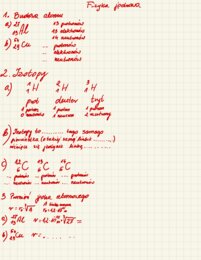 Fizyka jądrowa
1. Budowa atomu
a) 27 13 Al 13 protonów
13 elektronów
14 neutronów
b) 64 29 Cu .. protonów
.. elektronów
... neutronów
2. Izotopy
a) 1 1 H 2 1 H 3 1 H
prot deuter tryt
1 proton 1 proton 1 proton
0 neutronów 1 neutron 2 neutrony
b) Izotopy to .......... tego samego
pierwiastka (o takiej samej liczbie .......)
różniące się jedynie liczbą ..........
c) 12 6 C 13 6 C 14 6 C
... protonów ... protonów ... protonów
... neutronów ... neutronów ... neutronów
3. Promień jądra atomowego
a) 27 13 Al
b) 64 29 Cu r = . . . . . .